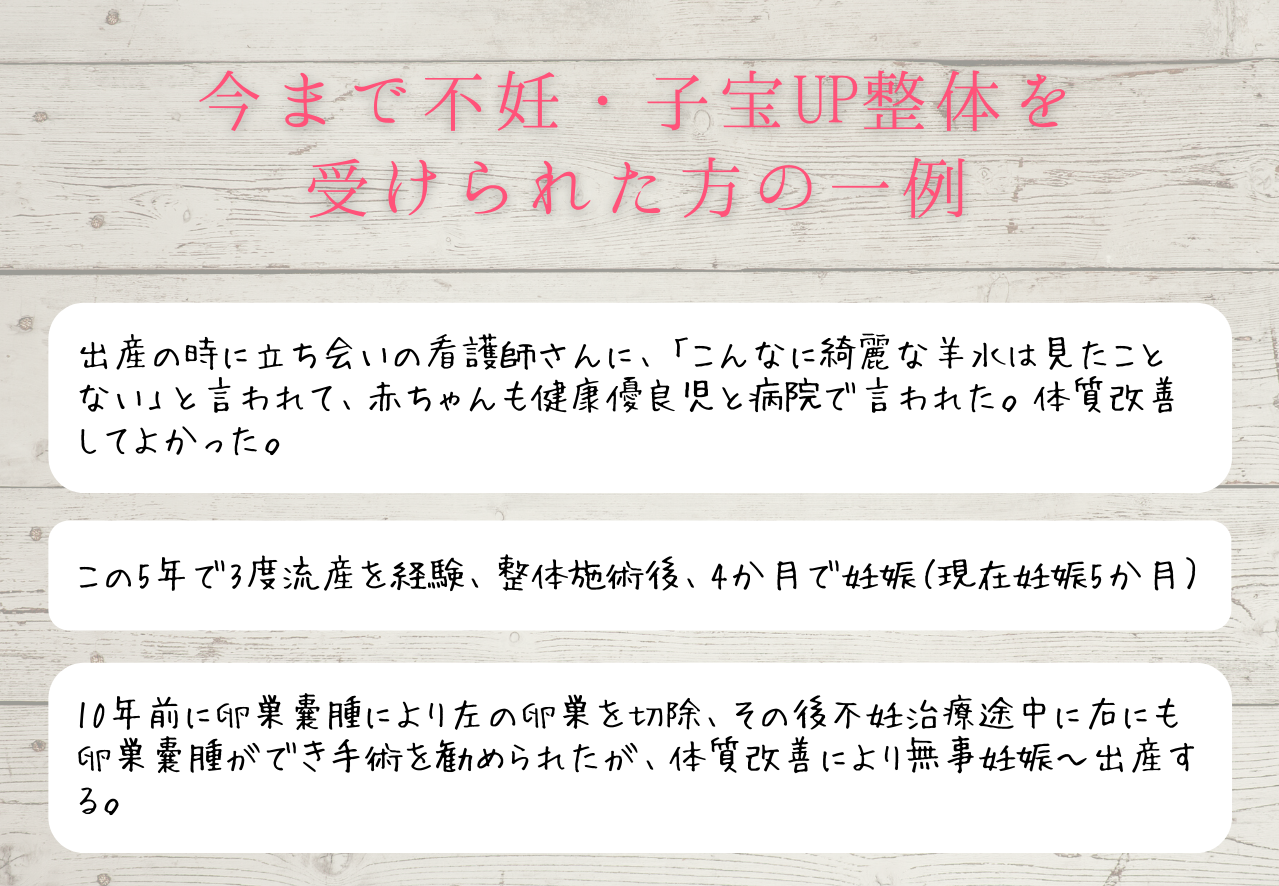 今まで不妊・子宝UP整体を
受けられた方の一例
出産の時に立ち会いの看護師さんに、「こんなに綺麗な羊水は見たこと
ない」と言われて、赤ちゃんも健康優良児と病院で言われた。体質改善
してよかった。
この5年で3度流産を経験、整体施術後、4か月で妊娠(現在妊娠5か月)
10年前に卵巣嚢腫により左の卵巣を切除、その後不妊治療途中に右にも
卵巣嚢腫ができ手術を勧められたが、体質改善により無事妊娠～出産す
る。